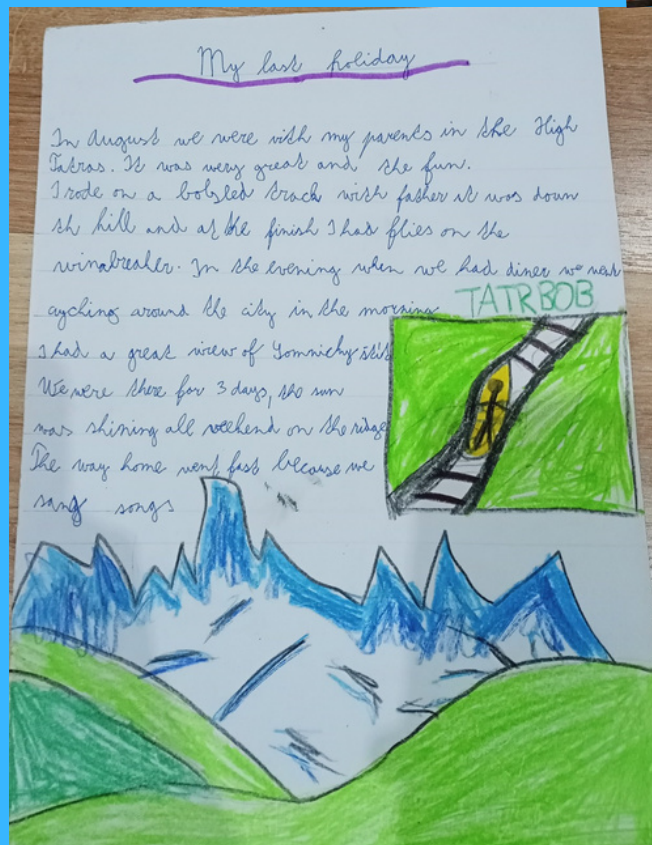 My last holiday
In August we were vith my parents in the High
Tatras. It was wery great and the fun.
I rode on a bobsled track with father it was down
th hill and at the finish I had flies on the
winabreaker. In the evening when we had diner we went
cycling around the city in the morning
TATRBOB
I had a great wiew of Lomnichy štít
We were there for 3 days, the sun
was shining all weekend on the ridge
The way home went fast because we
sang songs